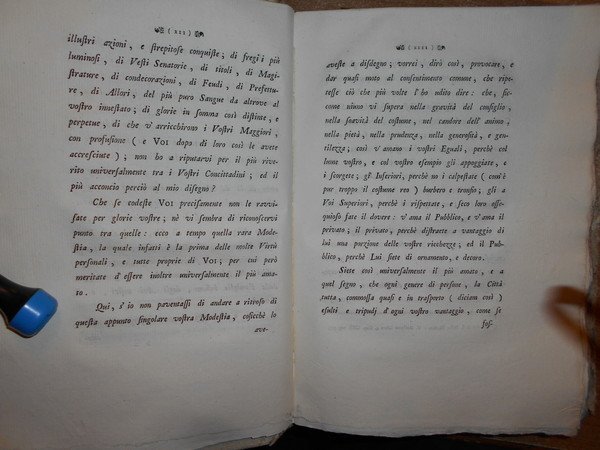 ( III )
illustri azioni, e strepitose conquiste; di fregi i più
luminosi, di Vesti Senatorie, di titoli, di Magi-
strature, di condecorazioni, di Feudi, di Prefettu-
re, di Allori, del più puro Sangue da altrove al
vostro innestato; di glorie in somma così distinte, e
perpetue, di che v'arricchirono i Vostri Maggiori,
con profusione (e VOI dopo di loro così le avete
accresciute); non ho a riputarvi per il più rive-
rito universalmente tra i Vostri Concittadini; ed il
più acconcio perciò al mio disegno?
Che se codeste VOI precisamente non le ravvi-
sate per glorie vostre; nè vi sembra di riconoscervi
punto tra quelle: ecco a tempo quella rara Mode-
stia, la quale infatti è la prima delle molte Virtù
personali, e tutte proprie di VOI; per cui però
meritate d'essere inoltre universalmente il più ama-
to.
Qui, s'io non paventassi di andare a ritroso di
questa appunto singolare vostra Modestia, cosicchè lo
ave-
( IIII )
aveste a disdegno; vorrei, dirò così, provocare, e
dar quasi moto al consentimento comune, che ripe-
tesse ciò che più volte l'ho udito dire: che, sic-
come niuno vi supera nella gravità del consiglio,
nella soavità del costume, nel candore dell'animo,
nella pietà, nella prudenza, nella generosità, e gen-
tilezza; così v'amano i vostri Eguali, perchè col
lume vostro, e col vostro esempio gli appoggiate, e
i scorgete; gl'Inferiori, perchè no i calpestate (com'è
pur troppo il costume reo) burbero e tronfio; gli a
Voi Superiori, perchè i rispettate, e seco loro osse-
quioso fate il dovere: v'ama il Pubblico, e v'ama il
privato; il privato, perchè distraete a vantaggio di
lui una porzione delle vostre ricchezze; ed il Pub-
blico, perchè Lui siete di ornamento, e decoro.
Siete così universalmente il più amato, e a
quel segno, che ogni genere di persone, la Città
tutta, commossa quasi e in trasporto (diciam così)
esulti e tripudj d'ogni vostro vantaggio, come se
fos-